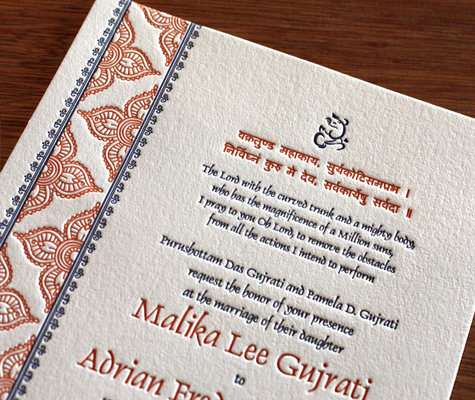 वक्रतुण्ड महाकाय, सुर्यकोटिसमप्रभ ।
निर्विघ्नं कुरु मे देव, सर्वकार्येषु सर्वदा ॥
The Lord with the curved trunk and a mighty body,
who has the magnificence of a Million suns,
I pray to you Oh Lord, to remove the obstacles
from all the actions I intend to perform
Purushottam Das Gujrati and Pamela D. Gujrati
request the honor of your presence
at the marriage of their daughter
Malika Lee Gujrati
to
Adrian Fred